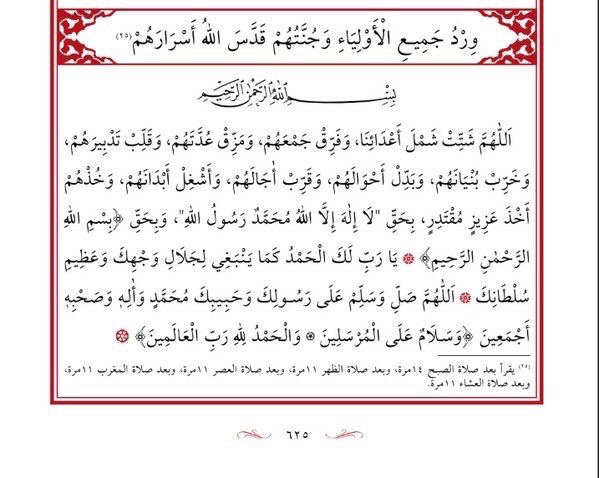 وِرْدُ جَمِيعِ الْأَوْلِيَاءِ وَجُنَّتُهُمْ قَدَّسَ اللهُ أَسْرَارَهُمْ (٢٥)
بِسْمِ اللهِ الرَّحْمٰنِ الرَّحِيمِ
اَللّٰهُمَّ شَتِّتْ شَمْلَ أَعْدَائِنَا، وَفَرِّقْ جَمْعَهُمْ، وَمَزِّقْ عُدَّتَهُمْ، وَقَلِّبْ تَدْبِيرَهُمْ،
وَخَرِّبْ بُنْيَانَهُمْ، وَبَدِّلْ أَحْوَالَهُمْ، وَقَرِّبْ أٰجَالَهُمْ، وَأَشْغِلْ أَبْدَانَهُمْ، وَخُذْهُمْ
أَخْذَ عَزِيزٍ مُقْتَدِرٍ، بِحَقِّ "لَا إِلٰهَ إِلَّا اللهُ مُحَمَّدٌ رَسُولُ اللهِ"، وَبِحَقِّ ﴿بِسْمِ اللهِ
الرَّحْمٰنِ الرَّحِيمِ﴾ ۞ يَا رَبِّ لَكَ الْحَمْدُ كَمَا يَنْبَغِي لِجَلَالِ وَجْهِكَ وَعَظِيمِ
سُلْطَانِكَ ۞ اَللّٰهُمَّ صَلِّ وَسَلِّمْ عَلَى رَسُولِكَ وَحَبِيبِكَ مُحَمَّدٍ وَأٰلِهِ وَصَحْبِهِ
أَجْمَعِينَ ﴿وَسَلَامٌ عَلَى الْمُرْسَلِينَ ۞ وَالْحَمْدُ لِلهِ رَبِّ الْعَالَمِينَ﴾ ۞
(٢٥) يقرأ بعد صلاة الصبح ١٤مرة، وبعد صلاة الظهر ١١مرة، وبعد صلاة العصر ١١مرة، وبعد صلاة المغرب ١١مرة،
وبعد صلاة العشاء ١١مرة.
٦٢٥